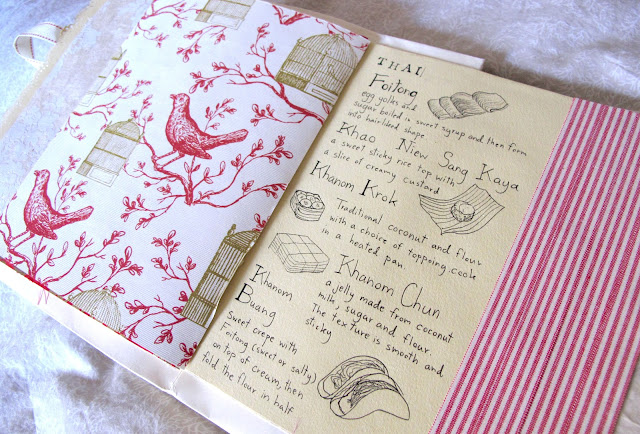 THAI
Foitong
egg yolks and
sugar boiled in sweet syrup and then form
into hairliked shape
Khao Niew Sang Kaya
a sweet sticky rice top with
a slice of creamy custard
Khanom Krok
Traditional coconut and flour
with a choice of toppoing cook
in a heated pan
Khanom Chun
a jelly made from coconut
milk, sugar and flour.
The texture is smooth and
sticky
Khanom
Buang
Sweet crepe with
Foitong (sweet or salty)
on top of cream, then
fold the flour in half